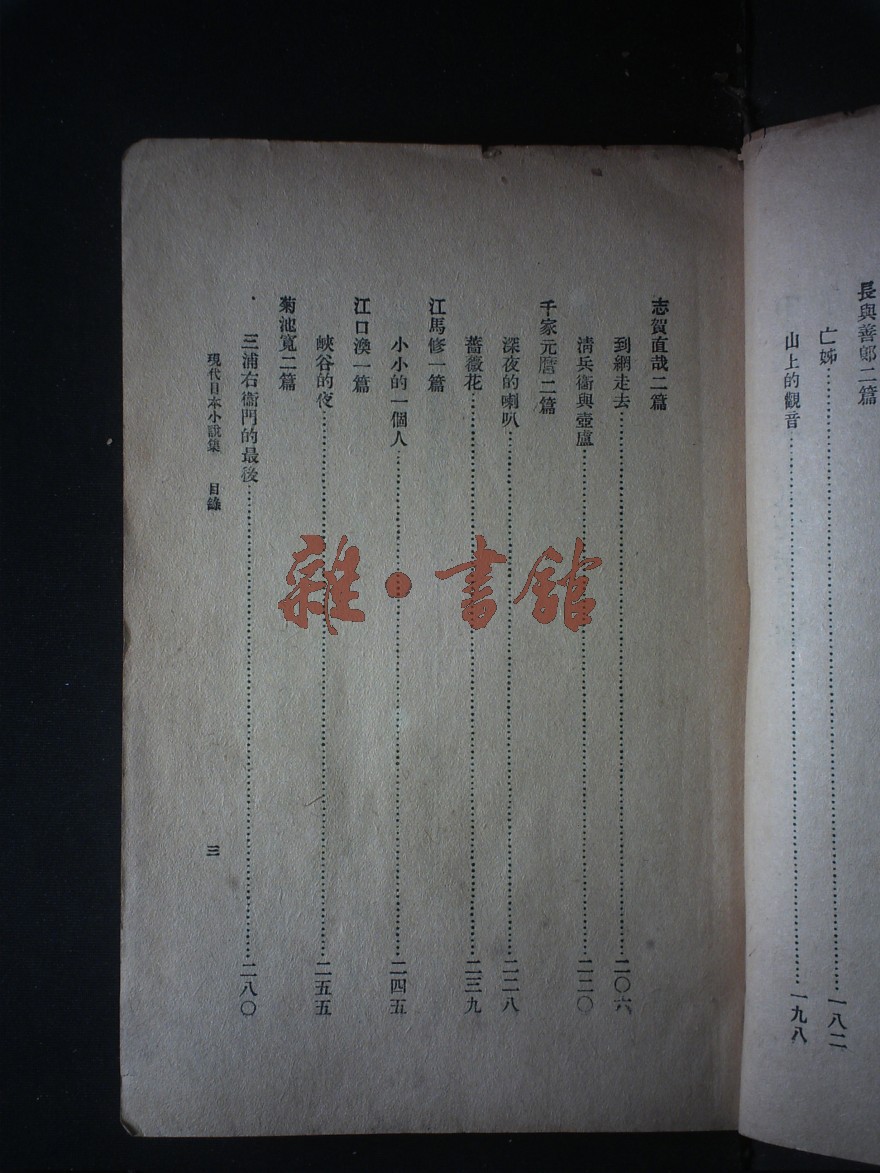 長與善郎二篇
亡姊……………一八二
山上的觀音……………一九八
志賀直哉二篇
到網走去……………二〇六
清兵衞與壺盧……………二二〇
千家元麿二篇
深夜的喇叭……………二二八
薔薇花……………二三九
江馬修一篇
小小的一個人……………二四五
江口渙一篇
峽谷的夜……………二五五
菊池寬二篇
三浦右衞門的最後……………二八〇
現代日本小說集 目錄
三
雜·書館